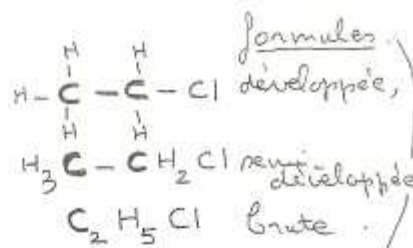 formules.
H H
H - C - C - Cl développée,
H H
H₃C - CH₂Cl semi développée
C₂H₅Cl brute.